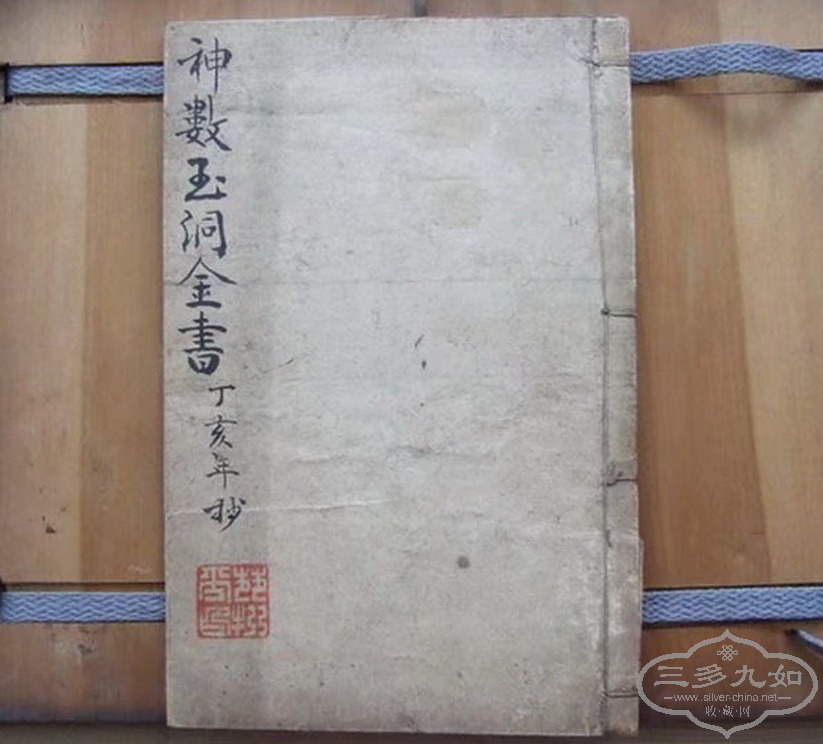 神數玉洞金書
丁亥年抄
三多九如
www.silver-china.net
收·藏·网